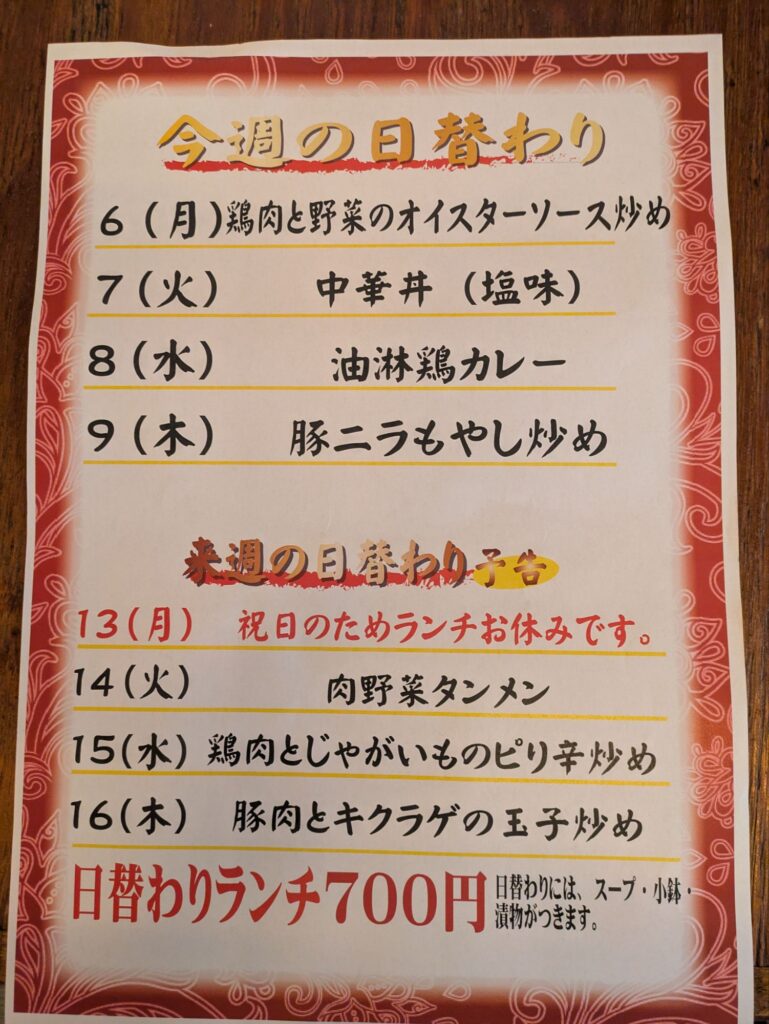 今週の日替わり
6(月)鶏肉と野菜のオイスターソース炒め
7(火) 中華丼(塩味)
8(水) 油淋鶏カレー
9(木) 豚ニラもやし炒め
来週の日替わり予告
13(月) 祝日のためランチお休みです。
14(火) 肉野菜タンメン
15(水) 鶏肉とじゃがいものピリ辛炒め
16(木) 豚肉とキクラゲの玉子炒め
日替わりランチ700円
日替わりには、スープ・小鉢・
漬物がつきます。